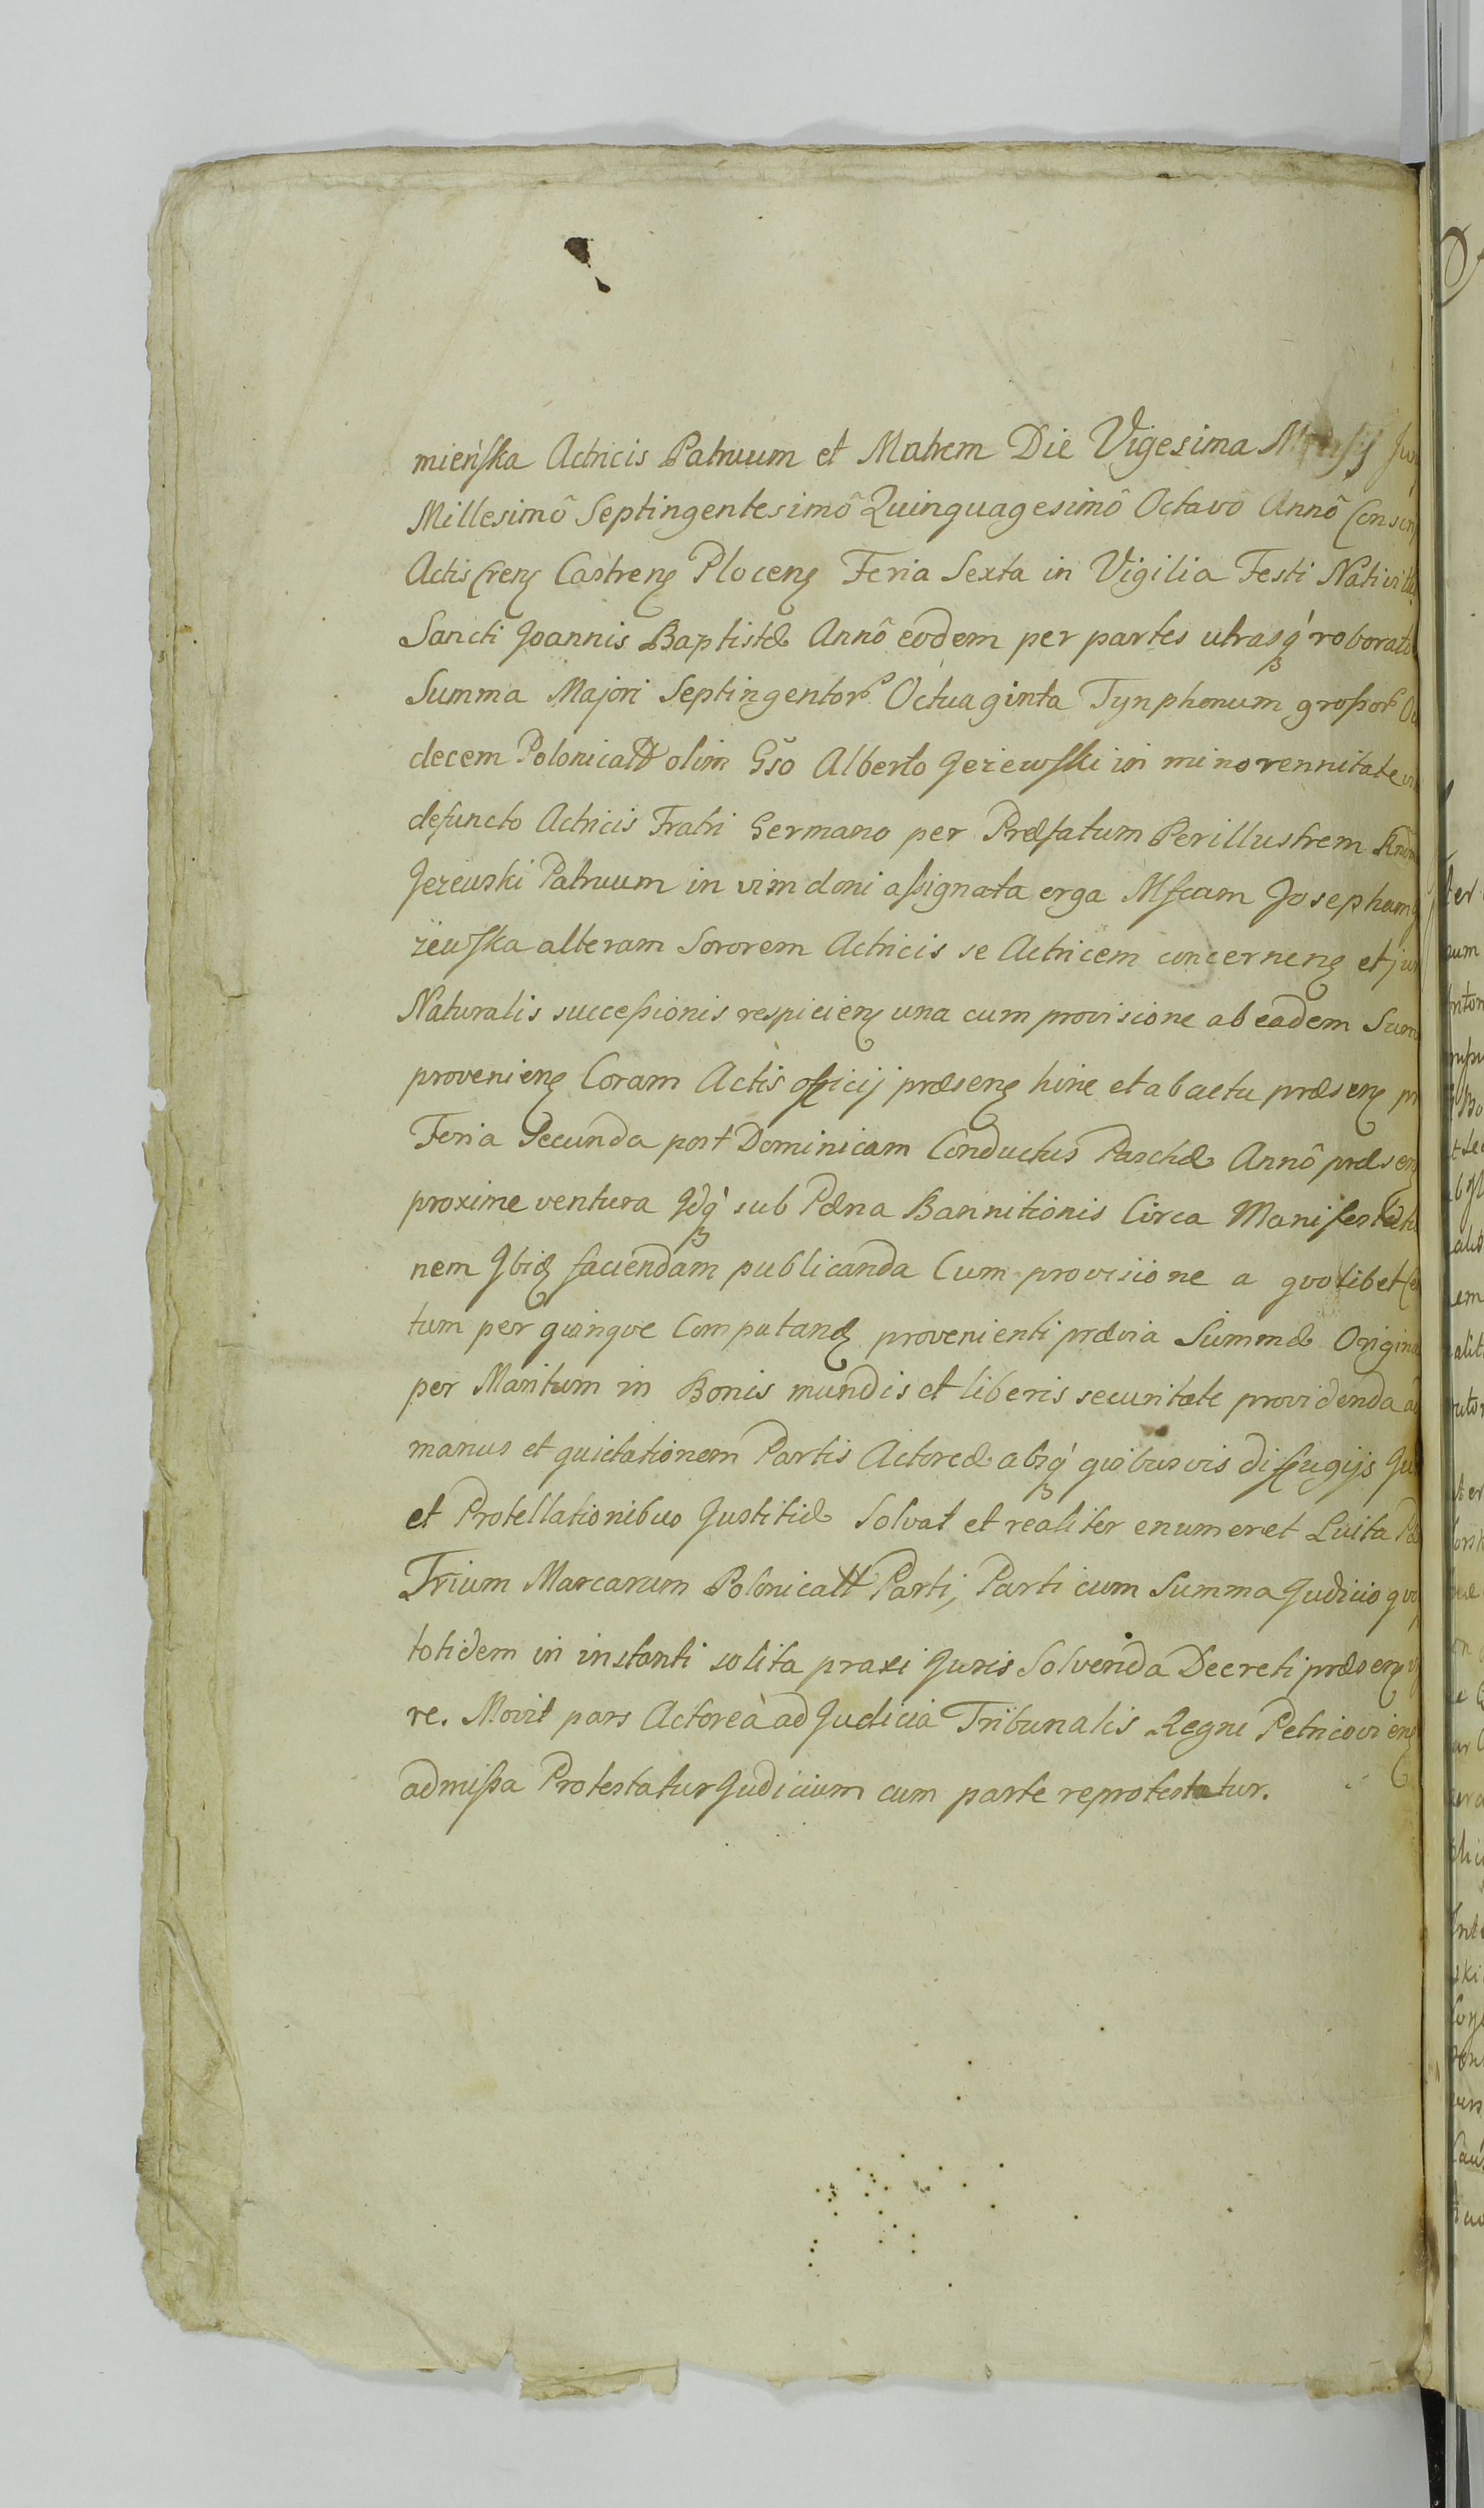 mieńska Actricis Patruum et Matrem Die Vigesima Mensis
Millesimô Septingentesimô Quinquagesimô Octavô Annô
Actis Castrens Plocens Feria Sexta in Vigilia Festi
Sancti Joannis Baptistæ Annô eodem per partes utrasq́ roborato
Summa Majori Septingentor Octuaginta Tynphonum großor
decem Polonicall olim Gso Alberto Jeżewski in minorennitate
defuncto Actricis Fratri Germano per Præfatum Perillustrem
Jeżewski Patruum in vim doni aßignata erga Mfcam Josepham
żewska alteram Sororem Actricis se Actricem concernens et
Naturalis succeßionis respiciens una cum provisione ab eadem
proveniens Coram Actis officij præsens hinc et ab actu præsens
Feria Secunda post Dominicam Conductus Paschæ Annô præsen
proxime ventura Idq́ sub Pæna Bannitionis Circa Manifestatio
nem Ibid faciendam publicanda Cum provisione a quolibet
tum per quinque Computand provenienti prævia Summæ
per Maritum in Bonis mundis et liberis securitate providenda ad
manus et quietationem Partis Actoreæ absq́ quibusvis diffugijs
et Protellationibus Justitiæ Solvat et realiter enumeret Luita
Trium Marcarum Polonicall Parti, Parti cum Summa Judicio
totidem in instanti solita praxi Juris Solvenda Decreti præsens
re. Movit pars Actorea ad Judicia Tribunalis Regni Petricoviens
admißa Protestatur Judicium cum parte reprotestatur.